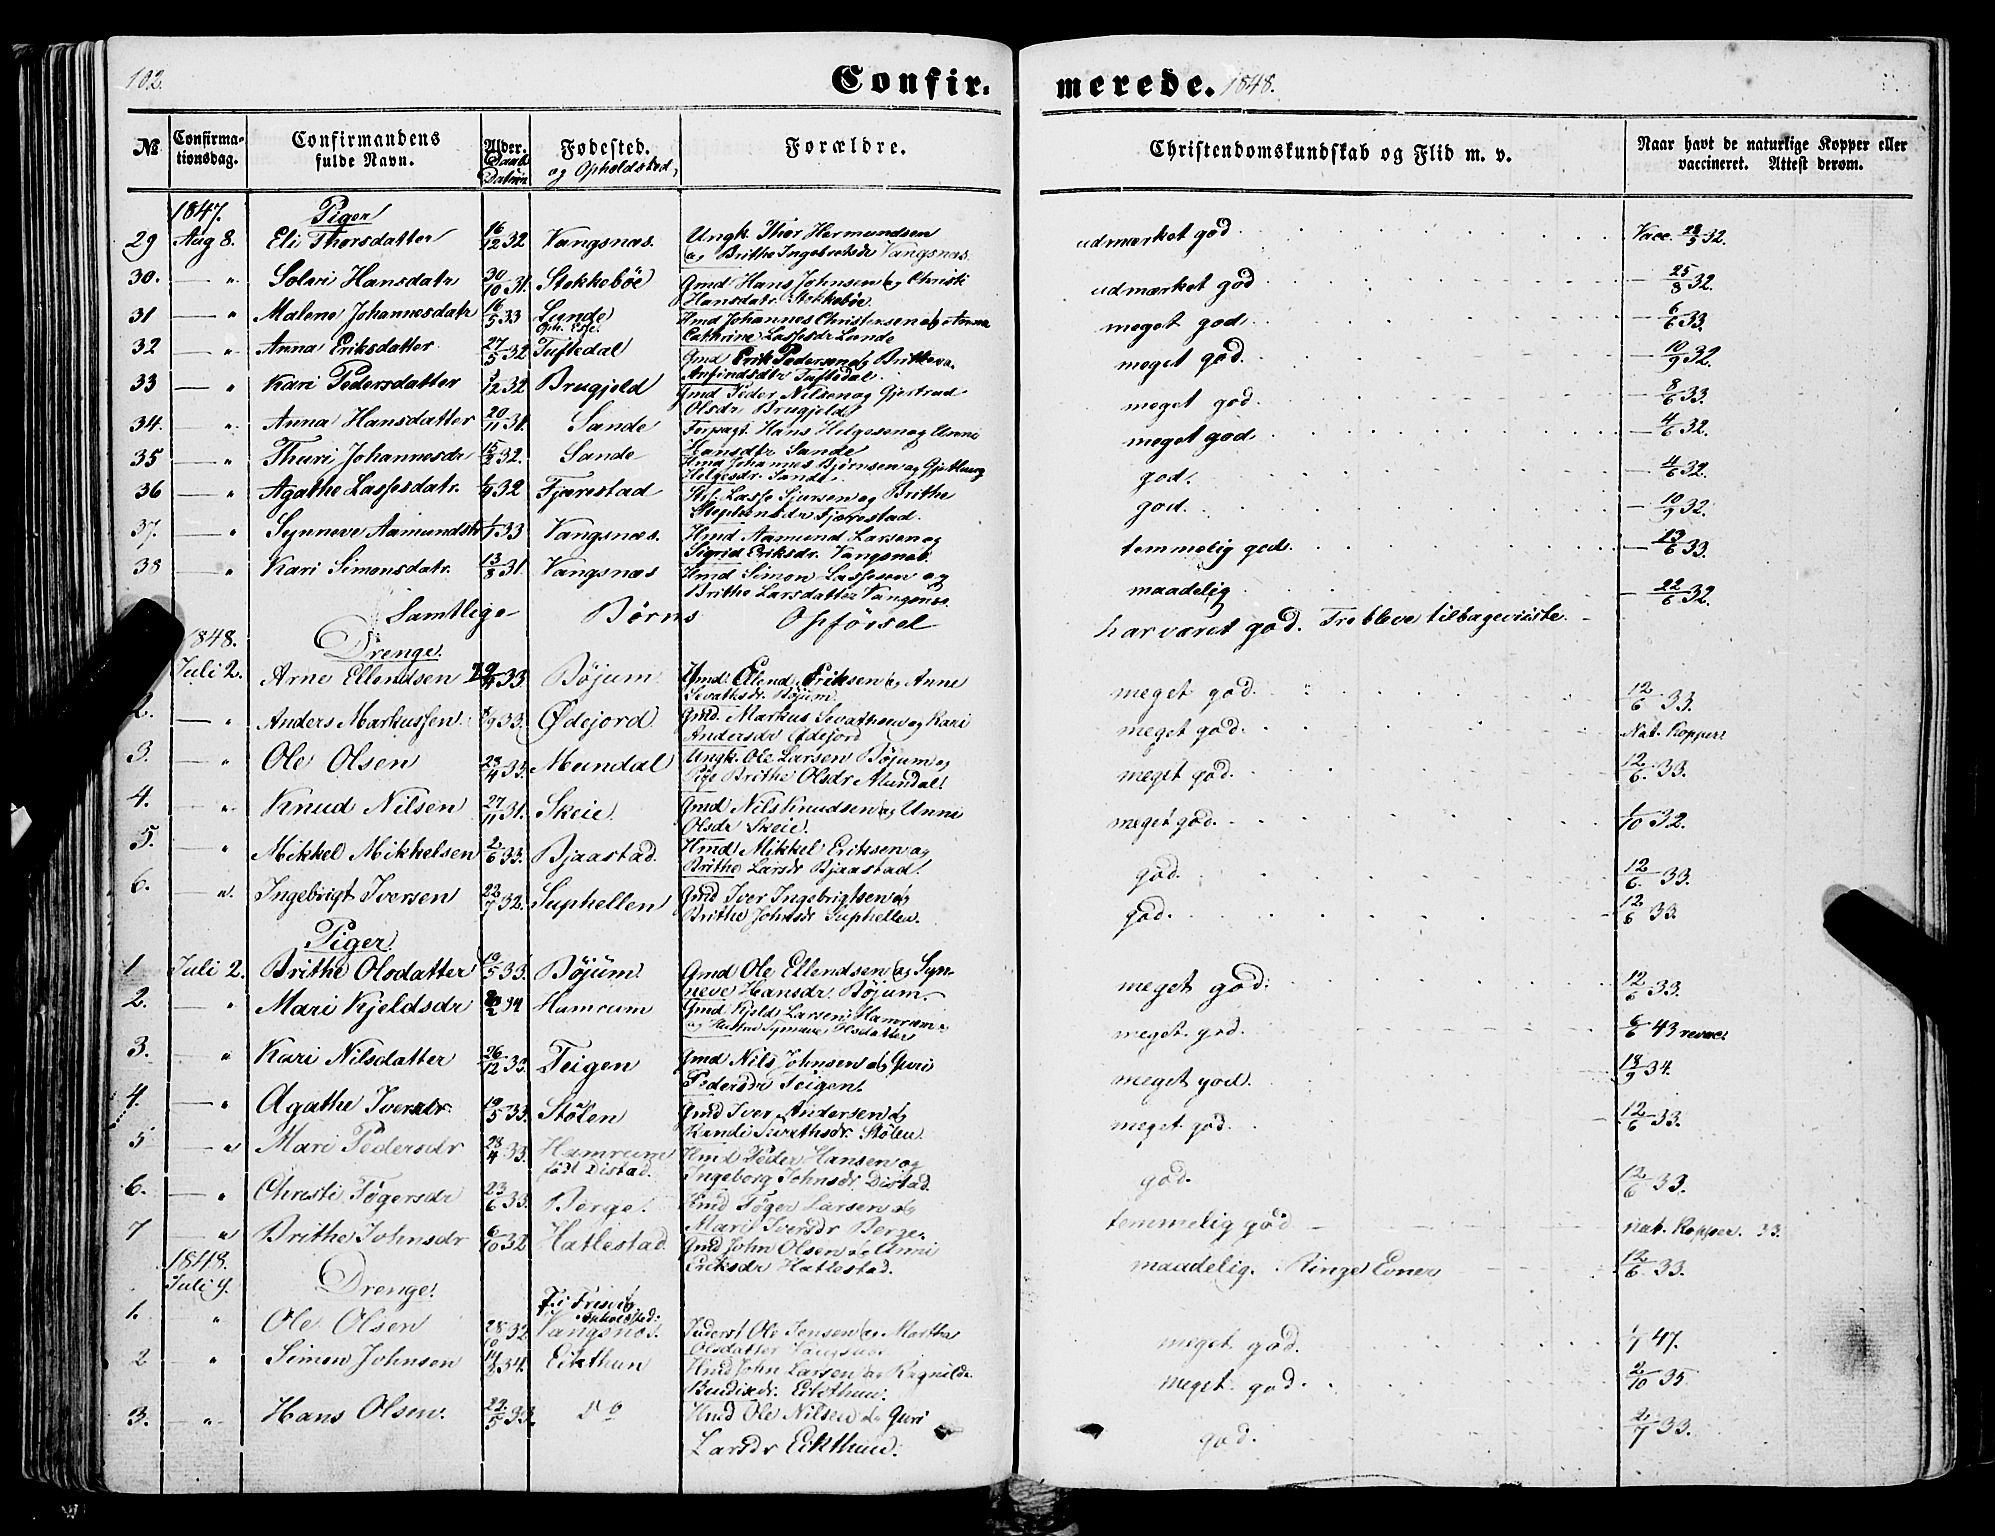 102.
Confirmerede. 1848.
№ Confirmationsdag. Confirmandens fulde Navn. Alder. Daabs Datum Fødested. og Opholdsted, Forældre. Christendomskundskab og Flid m. v. Naar havt de naturlige Kopper eller vaccineret. Attest derom.
1847. Piger
29 Aug 8. Eli Thorsdatter 16/12 32 Vangsnæs. Ungk. Thor Hermundsen og Brithe Ingebretsdr Vangsnæs. udmærket god Vacc. 32.
30. — " Solvi Hansdatr 30/10 31. Stokkebøe Gmd Hans Johnsen og Christi Hansdatr. Stokkebøe. udmærket god — 25/8 32.
31 — " Malene Johannesdatr 16/5 33 Lunde Hmd Johannes Christensen og Anna Cathrine Lassesdr Lunde meget god. — 6/6 33.
32 — " Anna Eriksdatter 27/5 32 Tuftedal Gmd Erik Pedersen og Britheva Anfindsdtr Tuftedal. meget god. — 10/9 32.
33 — " Kari Pedersdatter 12 32 Brugjeld Gmd Peder Nilsen og Gjertrud Olsdr Brugjeld meget god. — 8/6 33.
34. — " Anna Hansdatter 20/11 31. Sande Forpagt. Hans Helgesen og Unni Hansdtr Sande meget god — 4/6 32.
35 — " Thuri Johannesdr 15/2 32. Sande Hmd Johannes Bjørnsen og Gjertborg Helgesdr. Sande. god. — 4/6 32.
36 — " Agathe Lassesdatr. 32 Fjærestad Lasse Sjursen og Brithe Stephensdr Fjærestad. god. — 10/9 32.
37. — " Synneve Aamundsdtr 33 Vangsnæs. Hmd Aamund Larsen og Sigrid Eriksdr. Vangsnæs. temmelig god. — 13/6 33.
38 — " Kari Simonsdatr. 13/8 31. Vangsnæs Hmd Simon Lassesen og Brithe Larsdatter Vangsnæs. maadelig — 22/6 32.
Samtlige Børns Opførsel har været god. Tre bleve tilbageviiste.
1848. Drenge.
Juli 2. Arne Ellendsen 33 Bøjum Gmd. Ellend Eriksen og Anne Sevathsdr. Bøjum. meget god. 12/6 33.
2. — " Anders Markussen. 33. Ødejord Gmd. Markus Sevathsen og Kari Andersdr Ødejord meget god. Nat. Kopper
3. — " Ole Olsen 28/4 33. Mundal Ungk. Ole Larsen Bøjum og Pige Brithe Olsdr Mundal meget god. 12/6 33.
4. — " Knud Nilsen 27/11 31. Skeie. Gmd Nils Knudsen og Unni Olsdr Skeie. meget god. 1/10 32.
5. " Mikkel Mikkelsen 2/6 33. Bjaastad. Hmd Mikkel Eriksen og Brithe Larsdr Bjaastad. god. 12/6 33.
6. — " Ingebrigt Iversen 22/7 32. Suphellen Gmd Iver Ingebrigtsen og Brithe Johnsdr Suphellen. god. 12/6 33.
Piger.
1 Juli 2. Brithe Olsdatter 19/5 33. Bøjum. Gmd Ole Ellendsen og Synneve Hansdr. Bøjum. meget god. 12/6 33.
2. — " Mari Kjeldsdr 34 Hamrum Gmd Kjeld Larsen Hamrum og Hustru Synneve Olsdatter meget god. 6/6 43 revac.
3. — " Kari Nilsdatter 26/12 33. Teigen Gmd Nils Johnsen og Guri Pedersdr Teigen. meget god. 18/9 34.
4. — " Agathe Iversdr. 19/5 33. Stølen Gmd Iver Andersen og Randi Sevathsdr. Stølen. meget god. 12/6 33.
5 — " Mari Pedersdr 28/4 33. Hamrum født Distad. Hmd Peder Hansen og Ingeborg Johnsdr. Distad. god. 12/6 33.
6. — " Christi Tøgersdr 23/6 33. Berge. Hmd Tøger Larsen og Mari Iversdr Berge. temmelig god nat. Kopper. 33.
7 — " Brithe Johnsdr 6/10 32 Hatlestad. Gmd John Olsen og Anni Eriksdr Hatlestad. maadelig. Ringe Evner 12/6 33.
1848.
Juli 9. Drenge.
1. " Ole Olsen 28/10 32 F. i Fresvig. Opholdsted: Vangsnæs. Inderst Ole Jensen og Martha Olsdatter Vangsnæs meget god. 1/7 47.
2 " Simon Johnsen 34. Eikthun Hmd John Larsen og Ragnilde Bendixdr. Eikthun. meget god. 2/10 35
3. — " Hans Olsen. 22/5 33. Do Hmd Ole Nilsen og Guri Larsdr Eikthun. god. 2/7 33.